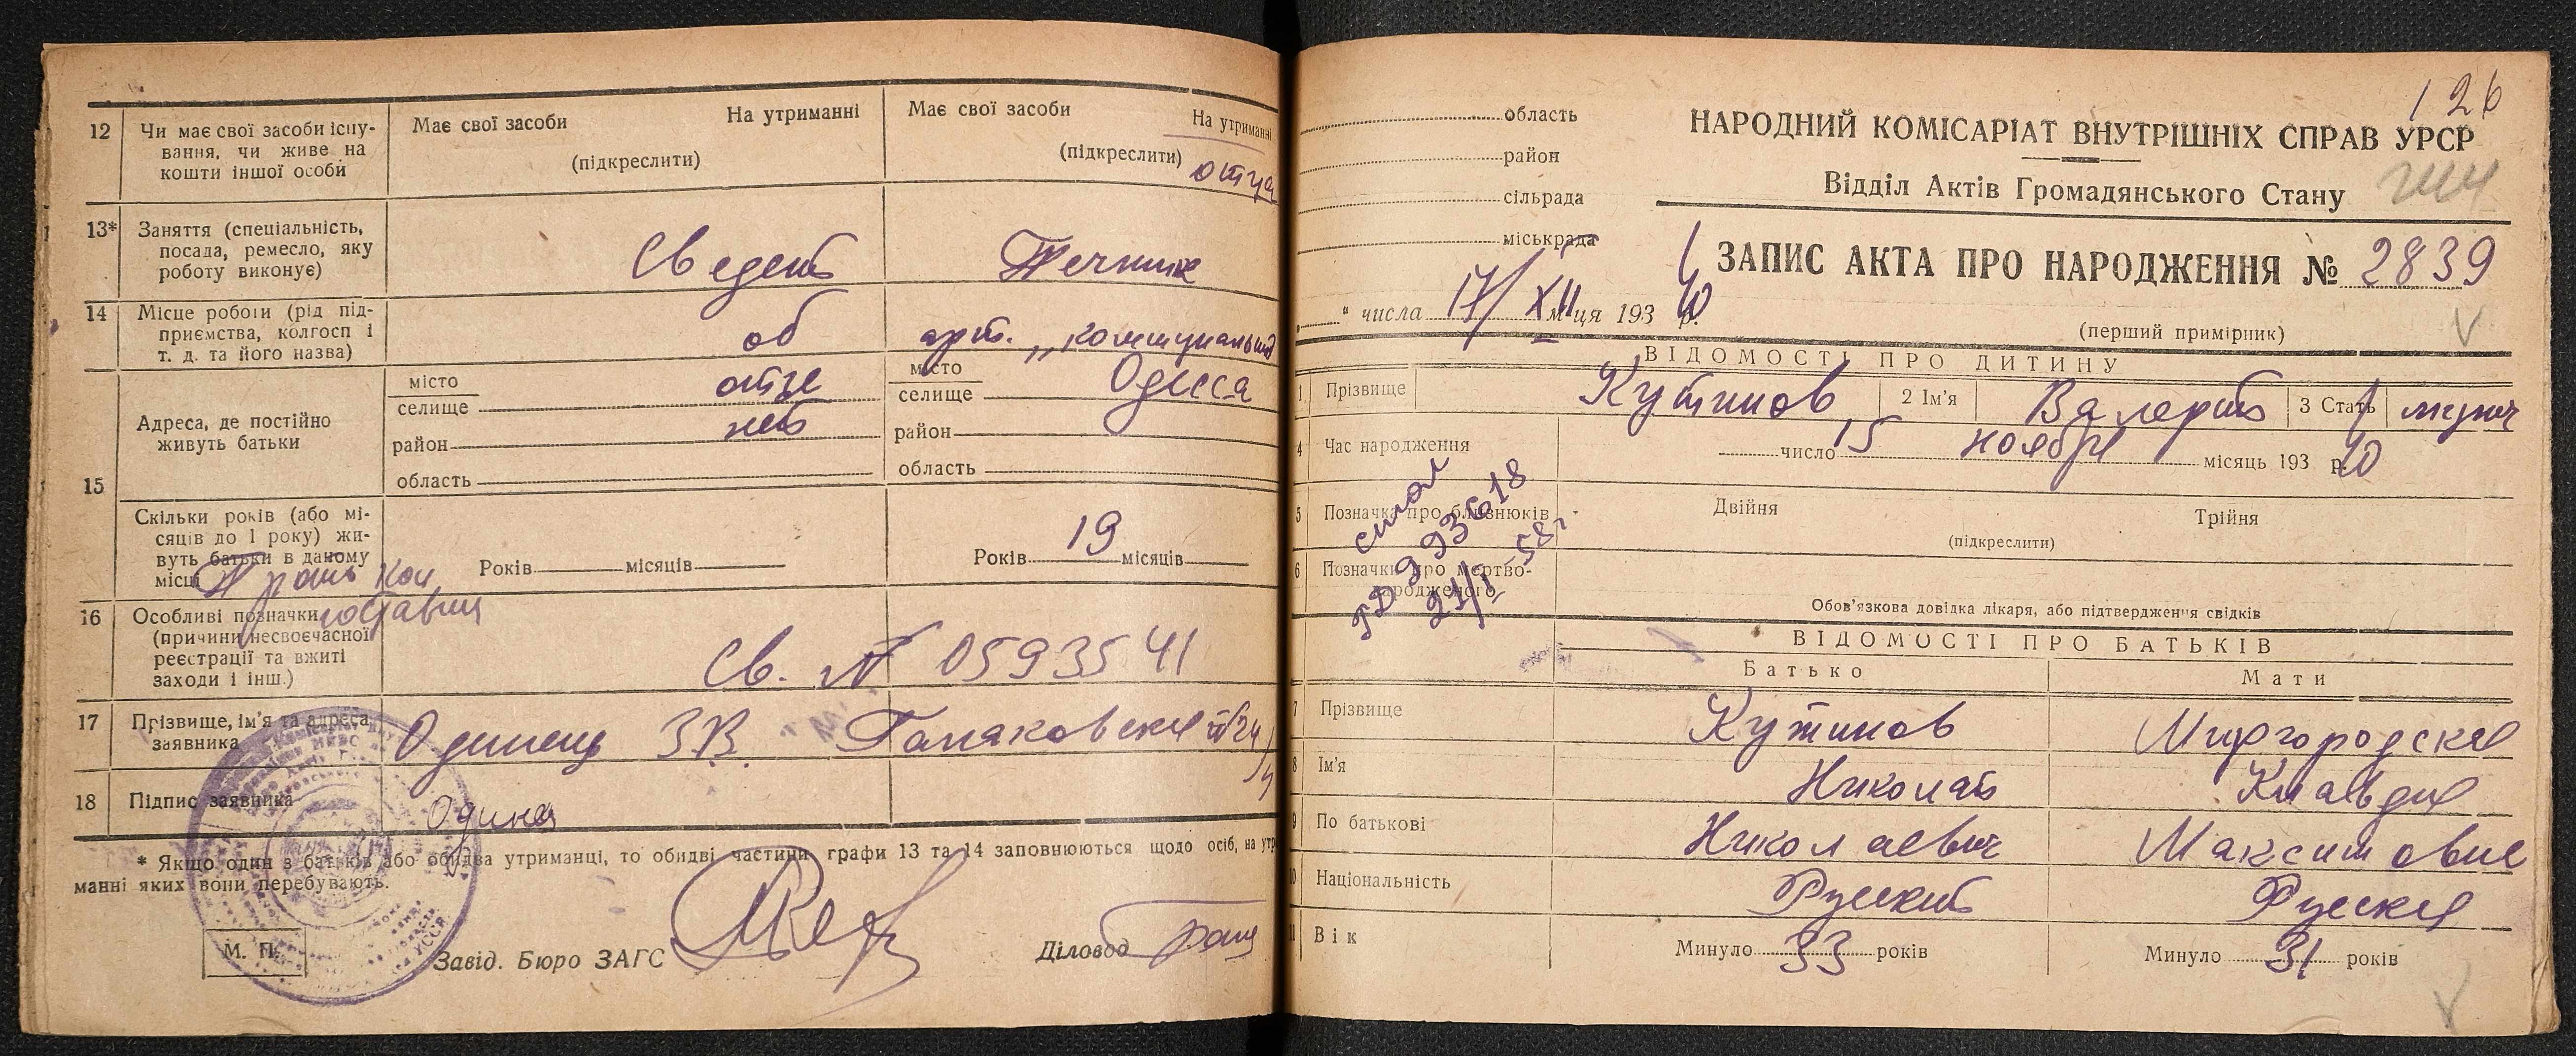 12 Чи має свої засоби існу-
вання, чи живе на
кошти іншої особи
Має свої засоби На утриманні
(підкреслити)
Має свої засоби На утриманні
(підкреслити)
отца
13* Заняття (спеціальність,
посада, ремесло, яку
роботу виконує)
Сведен Техник
14 Місце роботи (рід під-
приємства, колгосп і
т. д. та його назва)
об арт. „коммунальник
15 Адреса, де постійно
живуть батьки
місто отце
селище
район нет
область
місто Одесса
селище
район
область
Скільки років (або мі-
сяців до 1 року) жи-
вуть батьки в даному
місці
Років місяців
Років 19 місяців
16 Особливі позначки
(причини несвоєчасної
реєстрації та вжиті
заходи і інш.)
Св. № 0593541
17 Прізвище, ім'я та адреса
заявника
Одинец З.В.
18 Підпис заявника
Один
* Якщо один з батьків або обидва утриманці, то обидві частини графи 13 та 14 заповнюються щодо осіб, на утри
манні яких вони перебувають.
М. П.
Завід. Бюро ЗАГС
Діловод
126
область
район
сільрада
міськрада
НАРОДНИЙ КОМІСАРІАТ ВНУТРІШНІХ СПРАВ УРСР
Відділ Актів Громадянського Стану
ЗАПИС АКТА ПРО НАРОДЖЕННЯ № 2839
" числа 17/XII м-ця 193 40 р.
(перший примірник)
ВІДОМОСТІ ПРО ДИТИНУ
1 Прізвище Кутинов 2 Ім'я Валерий 3 Стать муж
4 Час народження число 15 ноября місяць 193 р. 40
5 Позначка про близнюків Двійня Трійня
(підкреслити)
6 Позначки про мертво-
народженого
Обов'язкова довідка лікаря, або підтвердження свідків
993618
21/I-58г
ВІДОМОСТІ ПРО БАТЬКІВ
Батько Мати
7 Прізвище Кутинов Миргородская
8 Ім'я Николай Клавдия
9 По батькові Николаевич Максимовна
10 Національність Русский Русская
11 Вік Минуло 33 років Минуло 31 років